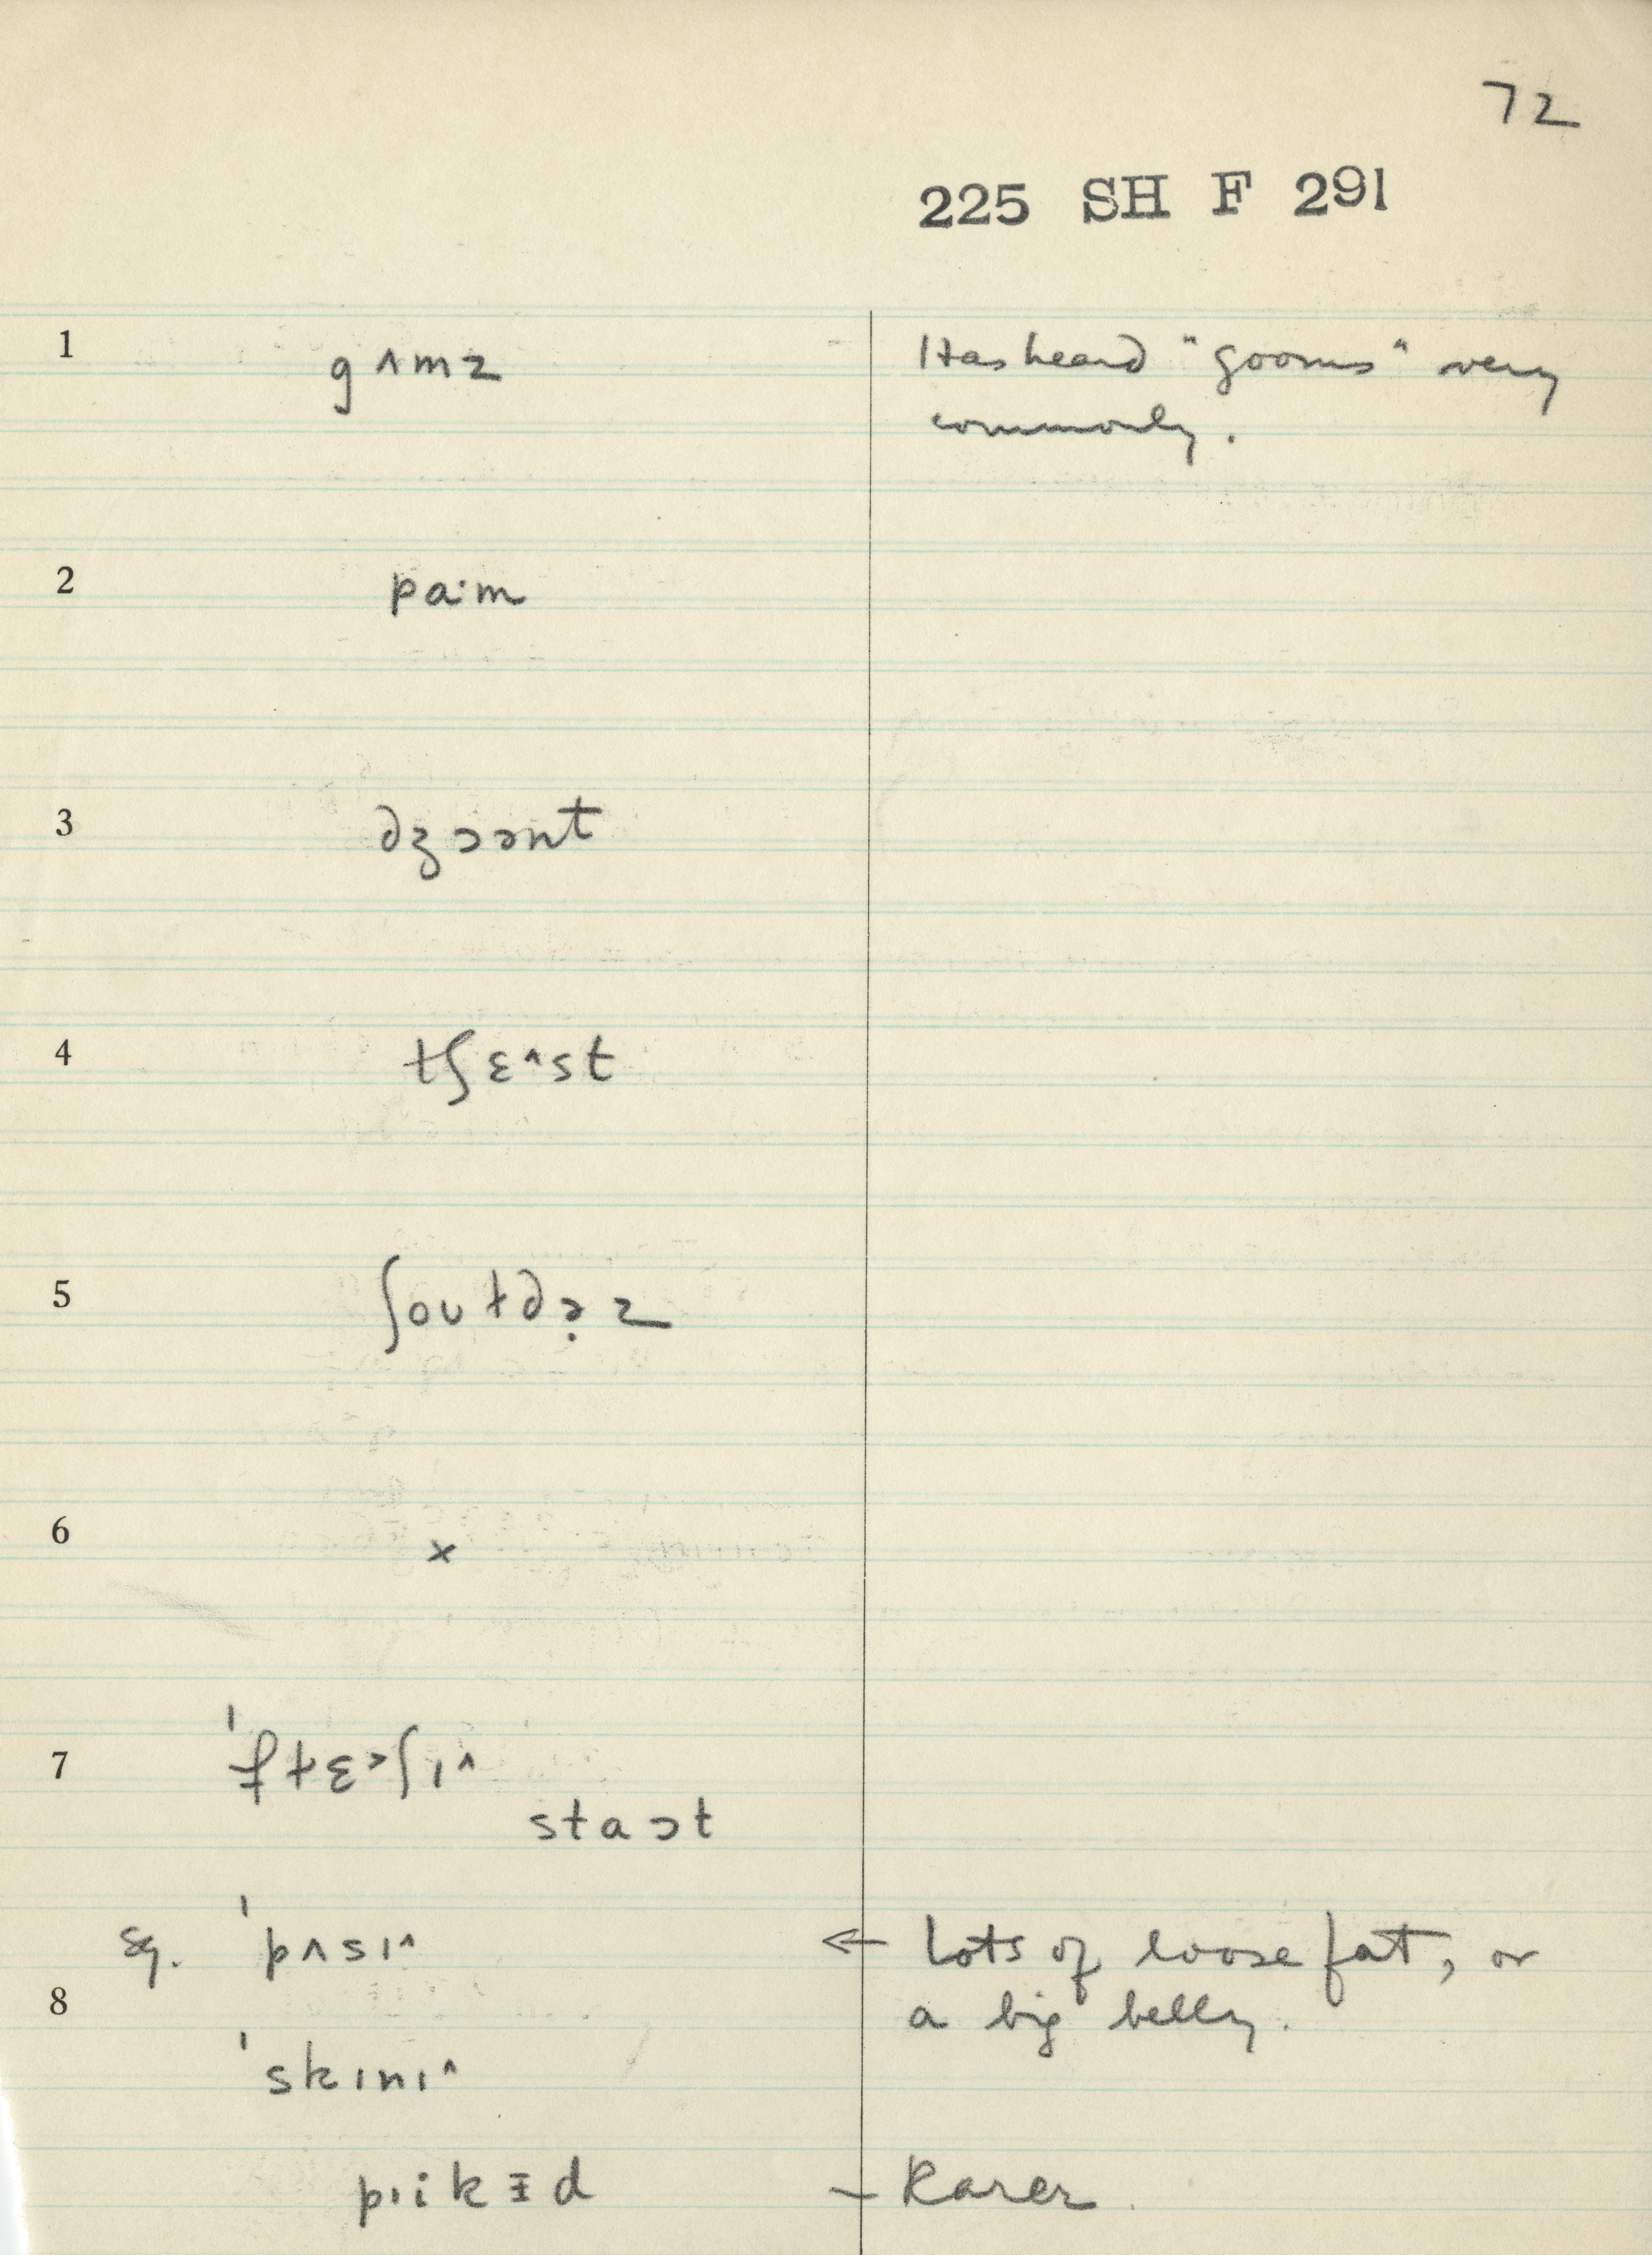 72
225 SH F 291
1 gʌmz Has heard "gooms" very
commonly.
2 pa·m
3 dʒɔənt
4 tʃɛ^st
5 ʃoʊldɚz
6 x
7 'flɛ>ʃɪ^
staʊt
sq. 'pʌsɪ^ ← Lots of loose fat, or
8 a big belly.
'skɪnɪ^
pɪikɪd – Rarer.